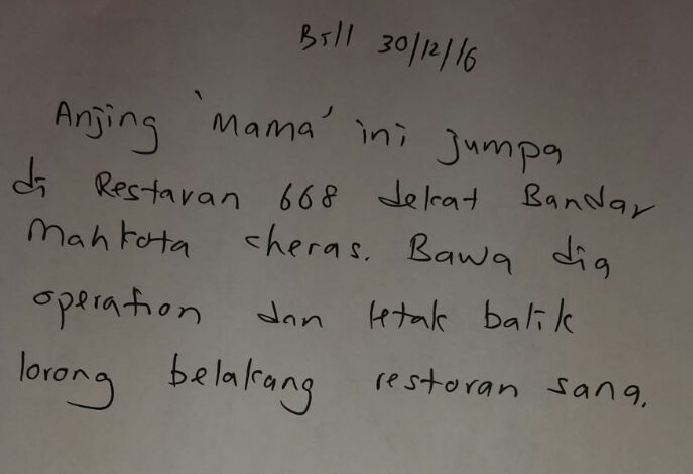 Bill 30/12/16
Anjing 'Mama' ini jumpa
di Restaran 668 dekat Bandar
Mahkota cheras. Bawa dia
operation dan letak balik
lorong belakang restoran sana.